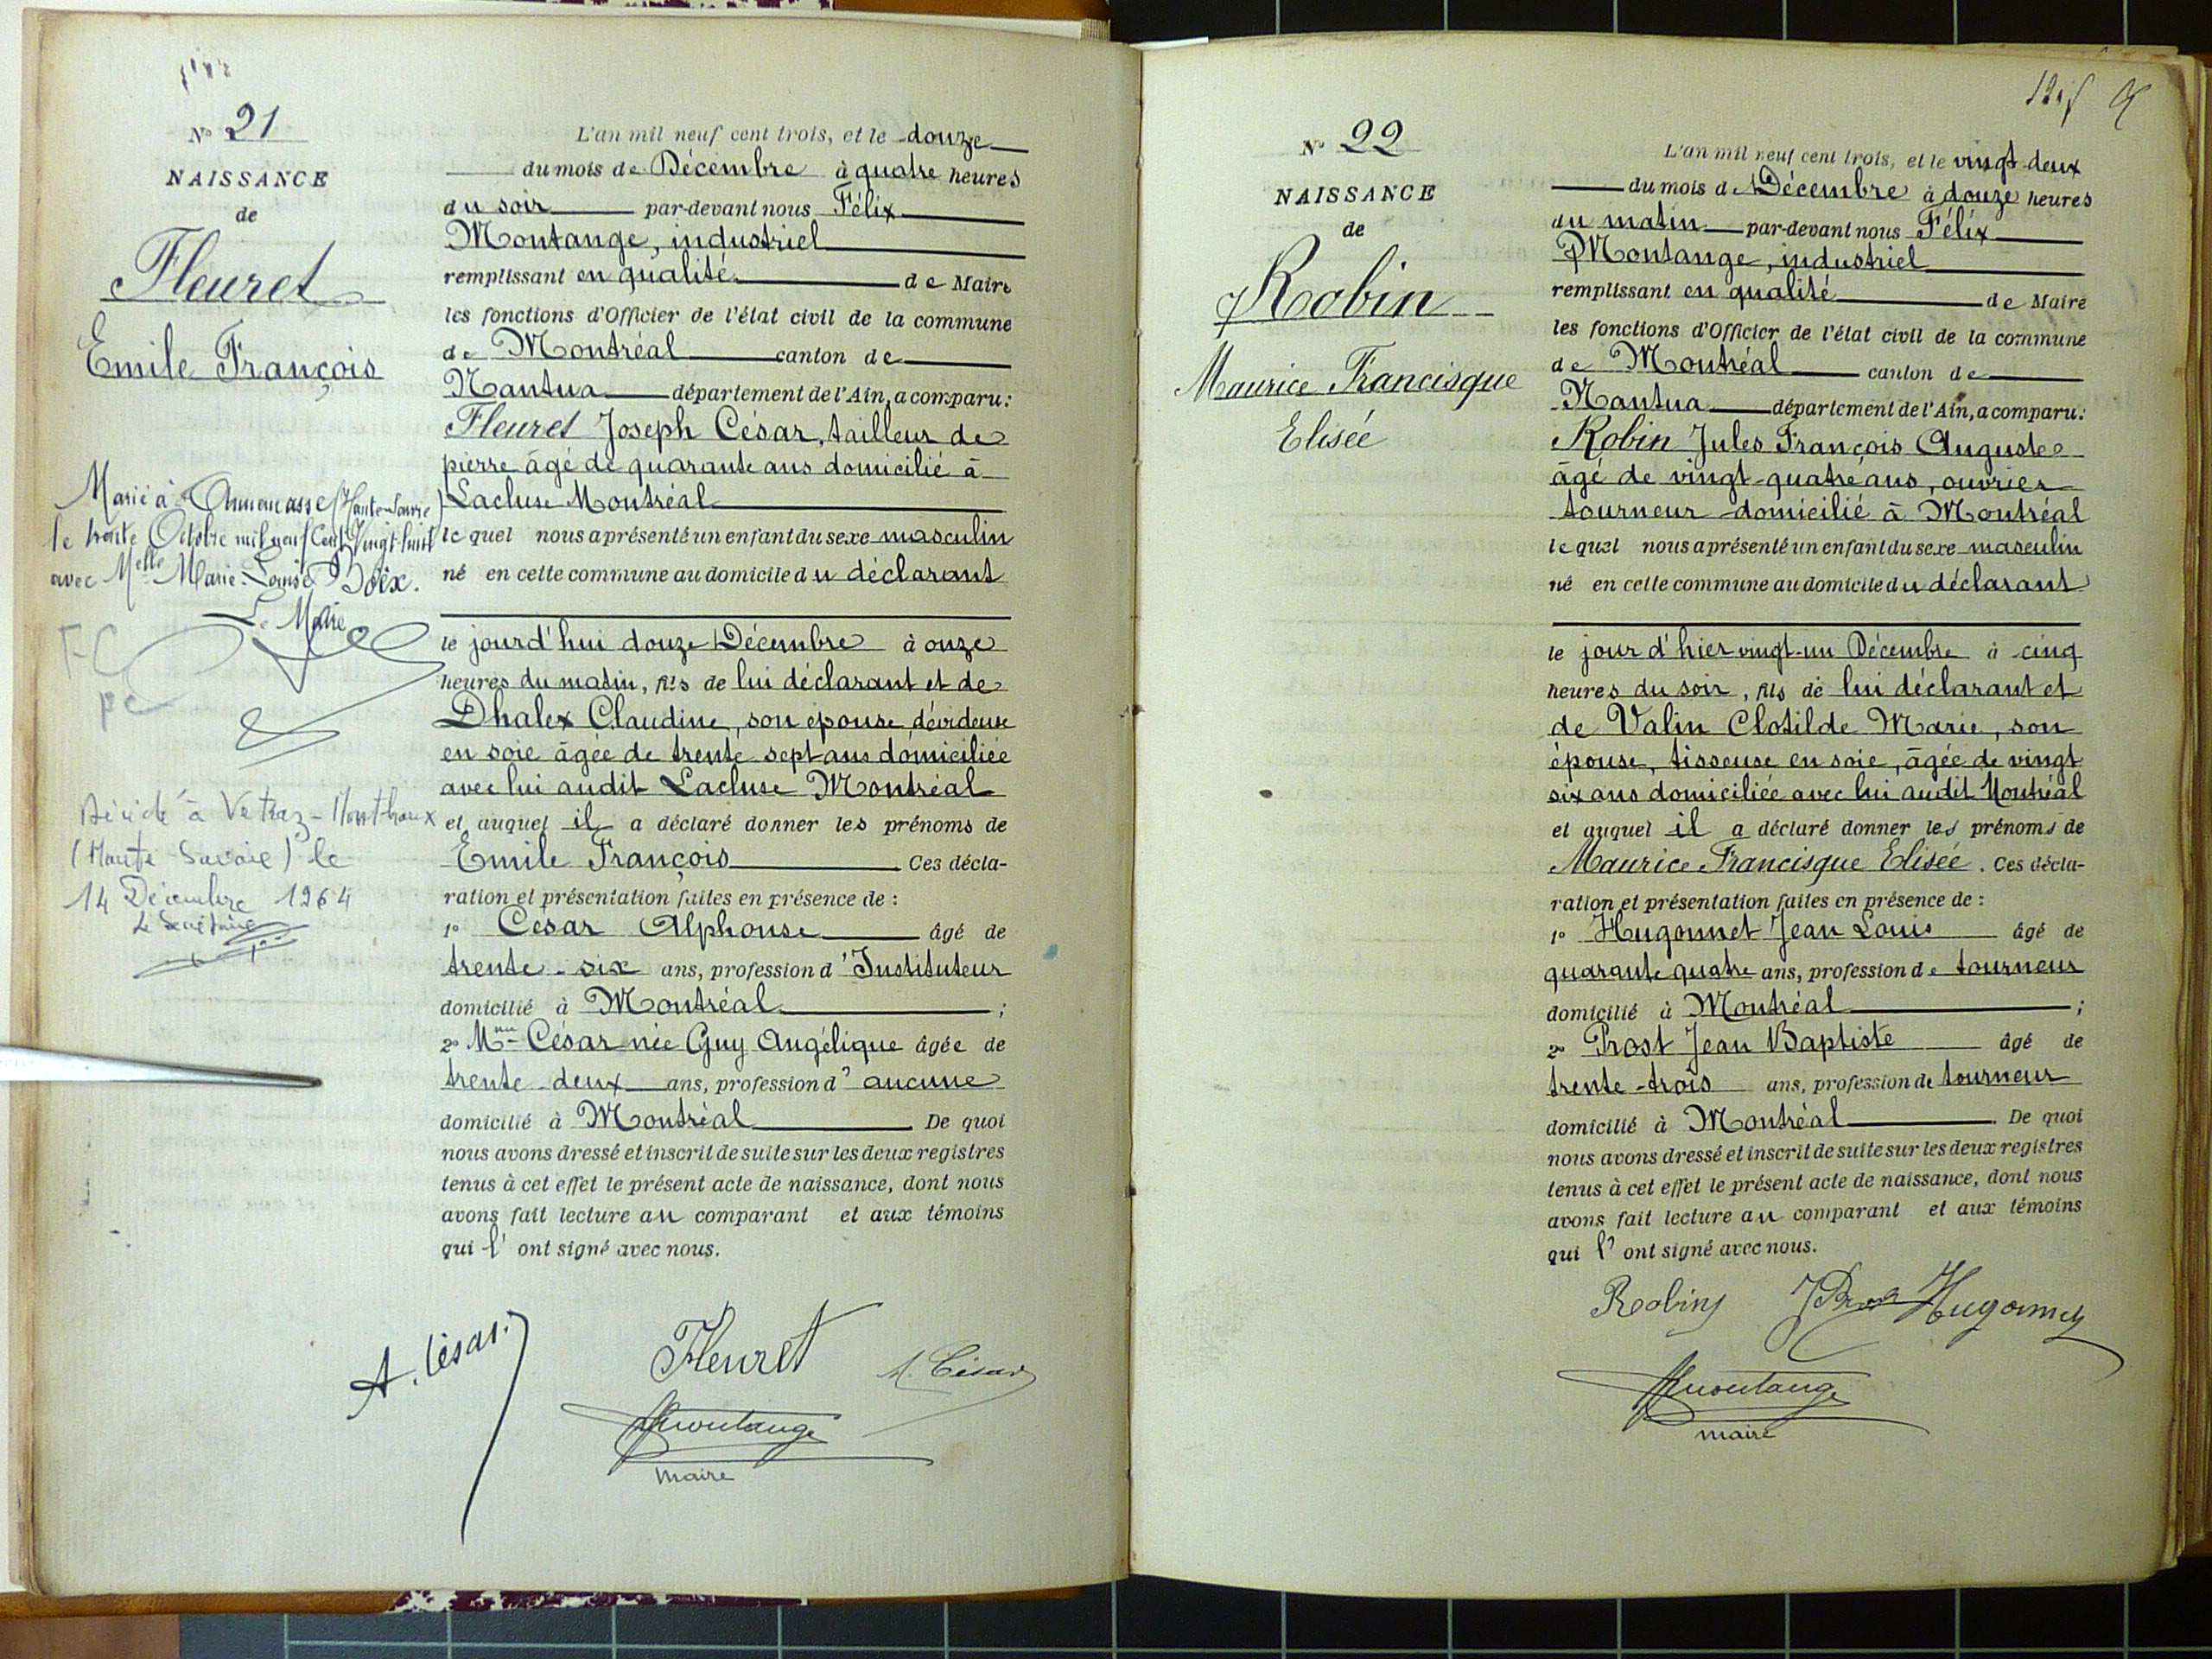 N° 21
NAISSANCE
de
Fleuret
Emile François
Marié à Annemasse (Haute-Savoie)
le trente Octobre mil neuf Cent Vingt-huit
avec Melle Marie-Louise
Le Maire
FC
pc
Décédé à Vetraz-Monthoux
(Haute Savoie) le
14 Décembre 1964
Le Secrétaire
L'an mil neuf cent trois, et le douze
du mois de Décembre à quatre heures
du soir par-devant nous Félix
Montange, industriel
remplissant en qualité de Maire
les fonctions d'Officier de l'état civil de la commune
de Montréal canton de
Nantua département de l'Ain, a comparu:
Fleuret Joseph César, tailleur de
pierre âgé de quarante ans domicilié à
Lacluse Montréal
le quel nous a présenté un enfant du sexe masculin
né en cette commune au domicile du déclarant
le jourd'hui douze Décembre à onze
heures du matin, fils de lui déclarant et de
Dhalex Claudine, son épouse dévideuse
en soie âgée de trente sept ans domiciliée
avec lui audit Lacluse Montréal
et auquel il a déclaré donner les prénoms de
Emile François. Ces décla-
ration et présentation faites en présence de :
1° César Alphonse âgé de
trente-six ans, profession d'Instituteur
domicilié à Montréal ;
2° Mme César née Guy Angélique âgée de
trente-deux ans, profession d'aucune
domicilié à Montréal. De quoi
nous avons dressé et inscrit de suite sur les deux registres
tenus à cet effet le présent acte de naissance, dont nous
avons fait lecture au comparant et aux témoins
qui l'ont signé avec nous.
A. César.
Fleuret
A. César
Montange
Maire
N° 22
NAISSANCE
de
Robin
Maurice Francisque
Elisée
L'an mil neuf cent trois, et le vingt-deux
du mois de Décembre à douze heures
du matin par-devant nous Félix
Montange, industriel
remplissant en qualité de Maire
les fonctions d'Officier de l'état civil de la commune
de Montréal canton de
Nantua département de l'Ain, a comparu:
Robin Jules François Auguste
âgé de vingt-quatre ans, ouvrier
tourneur domicilié à Montréal
le quel nous a présenté un enfant du sexe masculin
né en cette commune au domicile du déclarant
le jour d'hier vingt-un Décembre à cinq
heures du soir, fils de lui déclarant et
de Valin Clotilde Marie, son
épouse, tisseuse en soie, âgée de vingt
six ans domiciliée avec lui audit Montréal
et auquel il a déclaré donner les prénoms de
Maurice Francisque Elisée. Ces décla-
ration et présentation faites en présence de :
1° Hugonnet Jean Louis âgé de
quarante quatre ans, profession de tourneur
domicilié à Montréal ;
2° Prost Jean Baptiste âgé de
trente-trois ans, profession de tourneur
domicilié à Montréal. De quoi
nous avons dressé et inscrit de suite sur les deux registres
tenus à cet effet le présent acte de naissance, dont nous
avons fait lecture au comparant et aux témoins
qui l'ont signé avec nous.
Robin Hugonnet
Montange
maire